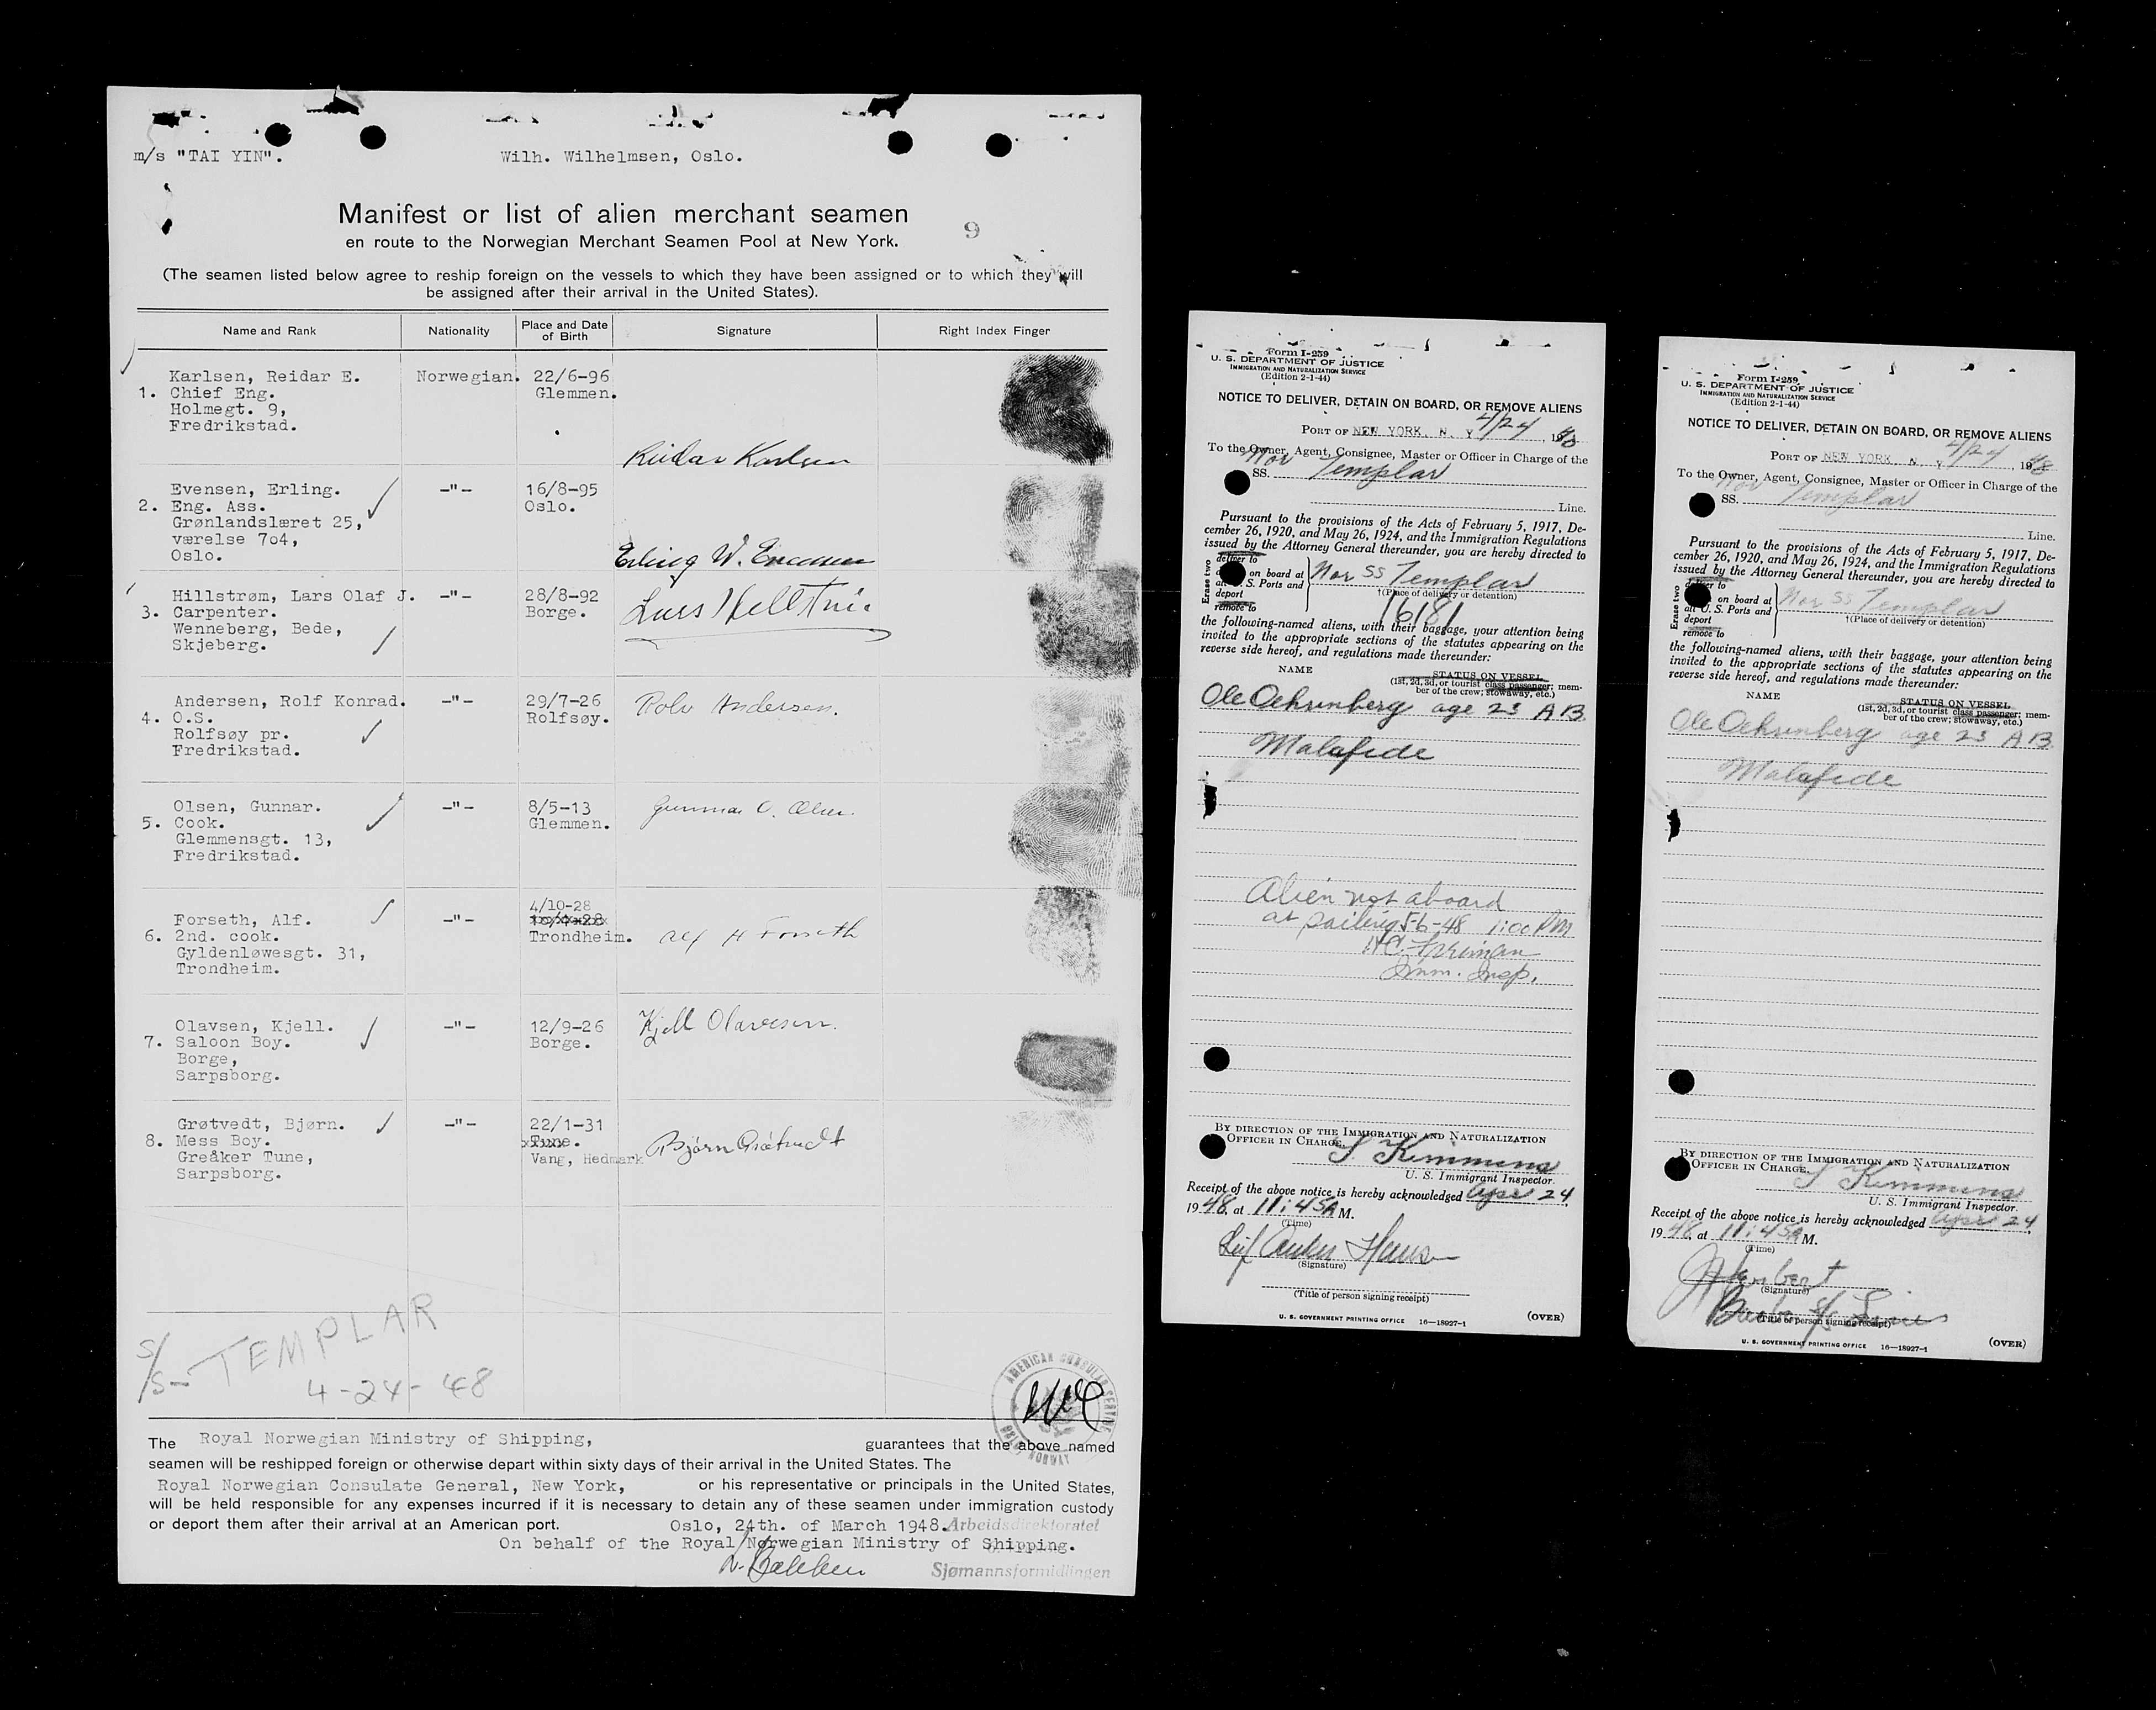 m/s "TAI YIN".
Wilh. Wilhelmsen, Oslo.
Manifest or list of alien merchant seamen
9
en route to the Norwegian Merchant Seamen Pool at New York.
(The seamen listed below agree to reship foreign on the vessels to which they have been assigned or to which they will
be assigned after their arrival in the United States).
Name and Rank
Nationality
Place and Date
of Birth
Signature
Right Index Finger
Karlsen, Reidar E.
1. Chief Eng.
Holmegt. 9,
Fredrikstad.
Norwegian.
22/6-96
Glemmen.
Reidar Karlsen
Evensen, Erling.
2. Eng. Ass.
Grønlandslæret 25,
værelse 7o4,
Oslo.
-"-
16/8-95
Oslo.
Erling W. Evensen
Hillstrøm, Lars Olaf J.
3. Carpenter.
Wenneberg, Bede,
Skjeberg.
-"-
28/8-92
Borge.
Lars
Andersen, Rolf Konrad.
4. O.S.
Rolfsøy pr.
Fredrikstad.
-"-
29/7-26
Rolfsøy.
Rolv Andersen.
Olsen, Gunnar.
5. Cook.
Glemmensgt. 13,
Fredrikstad.
-"-
8/5-13
Glemmen.
Gunnar O. Olsen.
Forseth, Alf.
6. 2nd. cook.
Gyldenløwesgt. 31,
Trondheim.
-"-
4/10-28
Trondheim.
Alf H Forseth
Olavsen, Kjell.
7. Saloon Boy.
Borge,
Sarpsborg.
-"-
12/9-26
Borge.
Kjell Olavesen.
Grøtvedt, Bjørn.
8. Mess Boy.
Greåker Tune,
Sarpsborg.
-"-
22/1-31
Tune.
Vang, Hedmark
Bjørn Grøtvedt
S/S- TEMPLAR
4-24-48
AMERICAN CONSULAR SERVICE
OSLO NORWAY
The Royal Norwegian Ministry of Shipping, guarantees that the above named
seamen will be reshipped foreign or otherwise depart within sixty days of their arrival in the United States. The
Royal Norwegian Consulate General, New York, or his representative or principals in the United States,
will be held responsible for any expenses incurred if it is necessary to detain any of these seamen under immigration custody
or deport them after their arrival at an American port. Oslo, 24th. of March 1948. Arbeidsdirektoratet
On behalf of the Royal Norwegian Ministry of Shipping.
Sjømannsformidlingen
Form I-259
U. S. DEPARTMENT OF JUSTICE
IMMIGRATION AND NATURALIZATION SERVICE
(Edition 2-1-44)
NOTICE TO DELIVER, DETAIN ON BOARD, OR REMOVE ALIENS
PORT OF NEW YORK, N. Y. 4/24, 1948
To the Owner, Agent, Consignee, Master or Officer in Charge of the
Nor SS. Templar
Line.
Pursuant to the provisions of the Acts of February 5, 1917, De-
cember 26, 1920, and May 26, 1924, and the Immigration Regulations
issued by the Attorney General thereunder, you are hereby directed to
Erase two
deliver to
on board at
all U. S. Ports and
deport
remove to
Nor SS Templar
†(Place of delivery or detention)
16181
the following-named aliens, with their baggage, your attention being
invited to the appropriate sections of the statutes appearing on the
reverse side hereof, and regulations made thereunder:
NAME
STATUS ON VESSEL
(1st, 2d, 3d, or tourist class passenger; mem-
ber of the crew; stowaway, etc.)
Ole Oehrenberg age 23 AB
Malafide
Alien not aboard
at sailing 5-6-48 1:00 PM
Imm. Insp.
BY DIRECTION OF THE IMMIGRATION AND NATURALIZATION
OFFICER IN CHARGE,
S Kimmens
U. S. Immigrant Inspector.
Receipt of the above notice is hereby acknowledged Apr 24
1948, at 11:45A M.
(Time)
Leif Anker Hansen
(Signature)
(Title of person signing receipt)
U. S. GOVERNMENT PRINTING OFFICE 16—18927-1
(OVER)
Form I-259
U. S. DEPARTMENT OF JUSTICE
IMMIGRATION AND NATURALIZATION SERVICE
(Edition 2-1-44)
NOTICE TO DELIVER, DETAIN ON BOARD, OR REMOVE ALIENS
PORT OF NEW YORK, N. Y. 4/24, 1948
To the Owner, Agent, Consignee, Master or Officer in Charge of the
Nor SS. Templar
Line.
Pursuant to the provisions of the Acts of February 5, 1917, De-
cember 26, 1920, and May 26, 1924, and the Immigration Regulations
issued by the Attorney General thereunder, you are hereby directed to
Erase two
deliver to
on board at
all U. S. Ports and
deport
remove to
Nor SS Templar
†(Place of delivery or detention)
the following-named aliens, with their baggage, your attention being
invited to the appropriate sections of the statutes appearing on the
reverse side hereof, and regulations made thereunder:
NAME
STATUS ON VESSEL
(1st, 2d, 3d, or tourist class passenger; mem-
ber of the crew; stowaway, etc.)
Ole Oehrenberg age 23 AB
Malafide
BY DIRECTION OF THE IMMIGRATION AND NATURALIZATION
OFFICER IN CHARGE,
S Kimmens
U. S. Immigrant Inspector.
Receipt of the above notice is hereby acknowledged Apr 24
1948, at 11:45A M.
(Time)
(Signature)
Barber S/S Lines
(Title of person signing receipt)
U. S. GOVERNMENT PRINTING OFFICE 16—18927-1
(OVER)